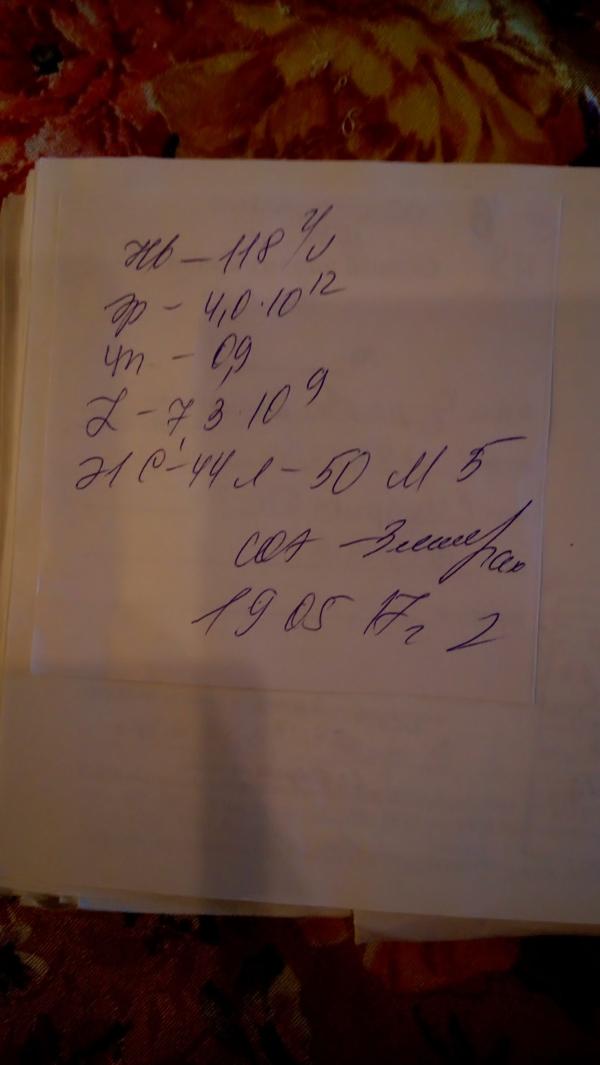 Hb – 118 г/л
Эр – 4,0·10¹²
ЦП – 0,9
L – 7,3·10⁹
Э1 С–44 Л–50 М 5
СОЭ –
19 05 17г